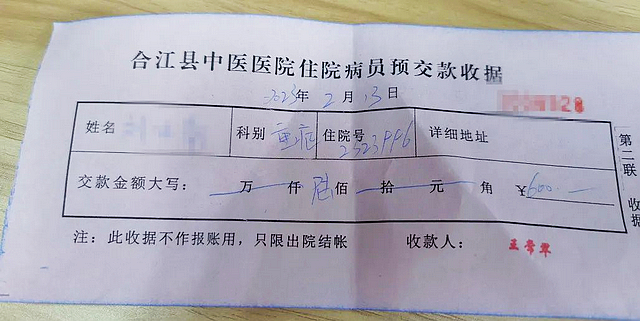 合江县中医医院住院病员预交款收据
2023年 2月 13日
128
姓名 科别 重症 住院号 2323996 详细地址
交款金额大写： 万 仟 陆佰 拾 元 角 ¥600.—
注：此收据不作报账用，只限出院结帐 收款人：
第二联 收据